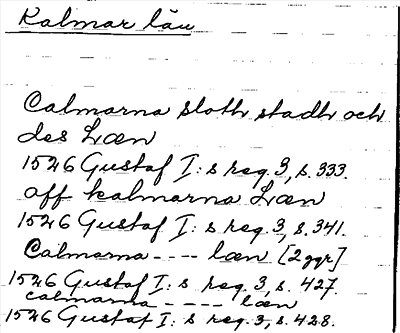 Kalmar län
Calmarna sloth stadh och
des Læn
1526 Gustaf I:s reg. 3, s. 333.
aff kalmarna Læn
1526 Gustaf I:s reg. 3, s. 341.
Calmarna - - - - læn [2 ggr]
1526 Gustaf I:s reg. 3, s. 427.
calmarna - - - - læn
1526 Gustaf I:s reg. 3, s. 428.